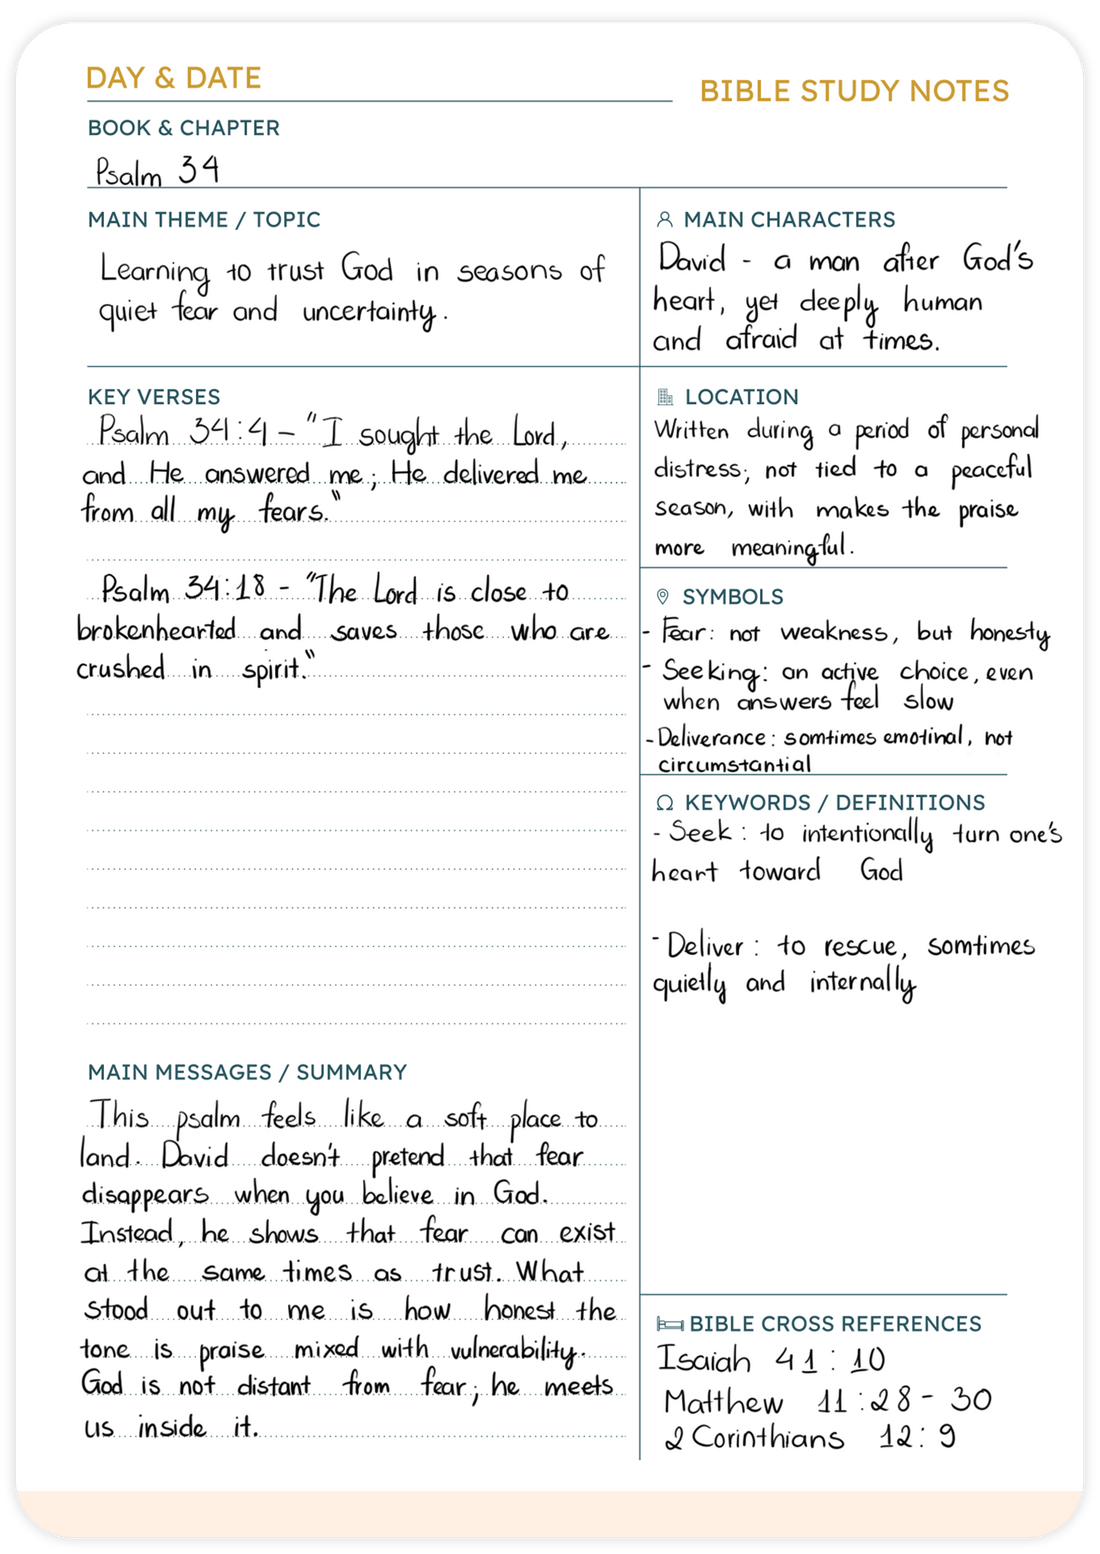 DAY & DATE
BIBLE STUDY NOTES
BOOK & CHAPTER
Psalm 34
MAIN THEME / TOPIC
Learning to trust God in seasons of
quiet fear and uncertainty.
MAIN CHARACTERS
David - a man after God's
heart, yet deeply human
and afraid at times.
KEY VERSES
Psalm 34:4 - "I sought the Lord,
and He answered me; He delivered me
from all my fears."
Psalm 34:18 - "The Lord is close to
brokenhearted and saves those who are
crushed in spirit."
LOCATION
Written during a period of personal
distress; not tied to a peaceful
season, with makes the praise
more meaningful.
SYMBOLS
- Fear: not weakness, but honesty
- Seeking: an active choice, even
when answers feel slow
- Deliverance: somtimes emotinal, not
circumstantial
KEYWORDS / DEFINITIONS
- Seek: to intentionally turn one's
heart toward God
- Deliver: to rescue, somtimes
quietly and internally
MAIN MESSAGES / SUMMARY
This psalm feels like a soft place to
land. David doesn't pretend that fear
disappears when you believe in God.
Instead, he shows that fear can exist
at the same times as trust. What
stood out to me is how honest the
tone is praise mixed with vulnerability.
God is not distant from fear; he meets
us inside it.
BIBLE CROSS REFERENCES
Isaiah 41:10
Matthew 11:28-30
2 Corinthians 12:9